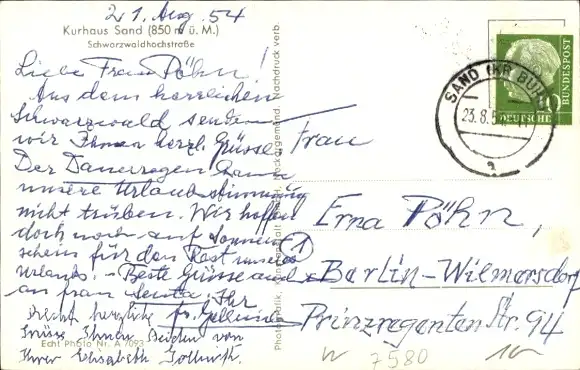 21. Aug. 54
Kurhaus Sand (850 m ü. M.)
Schwarzwaldhochstraße
Liebe Frau Pöhn!
Aus dem herrlichen
Schwarzwald senden
wir Ihnen herzl. Grüsse.
Der Dauerregen kann
unsere Urlaubsstimmung
nicht trüben. Wir hoffen
doch noch auf Sonnen-
schein für den Rest unseres
Urlaubs. - Beste Grüsse auch
an Frau Senta. Ihr
Recht herzliche
Grüsse Ihnen Beiden von
Ihrer Elisabeth
Echt Photo Nr. A 7093
Nachdruck verb.
SAND
23.8.5
DEUTSCHE
BUNDESPOST
10
Frau
Erna Pöhn,
1
Berlin-Wilmersdorf
Prinzregenten Str. 94
7580